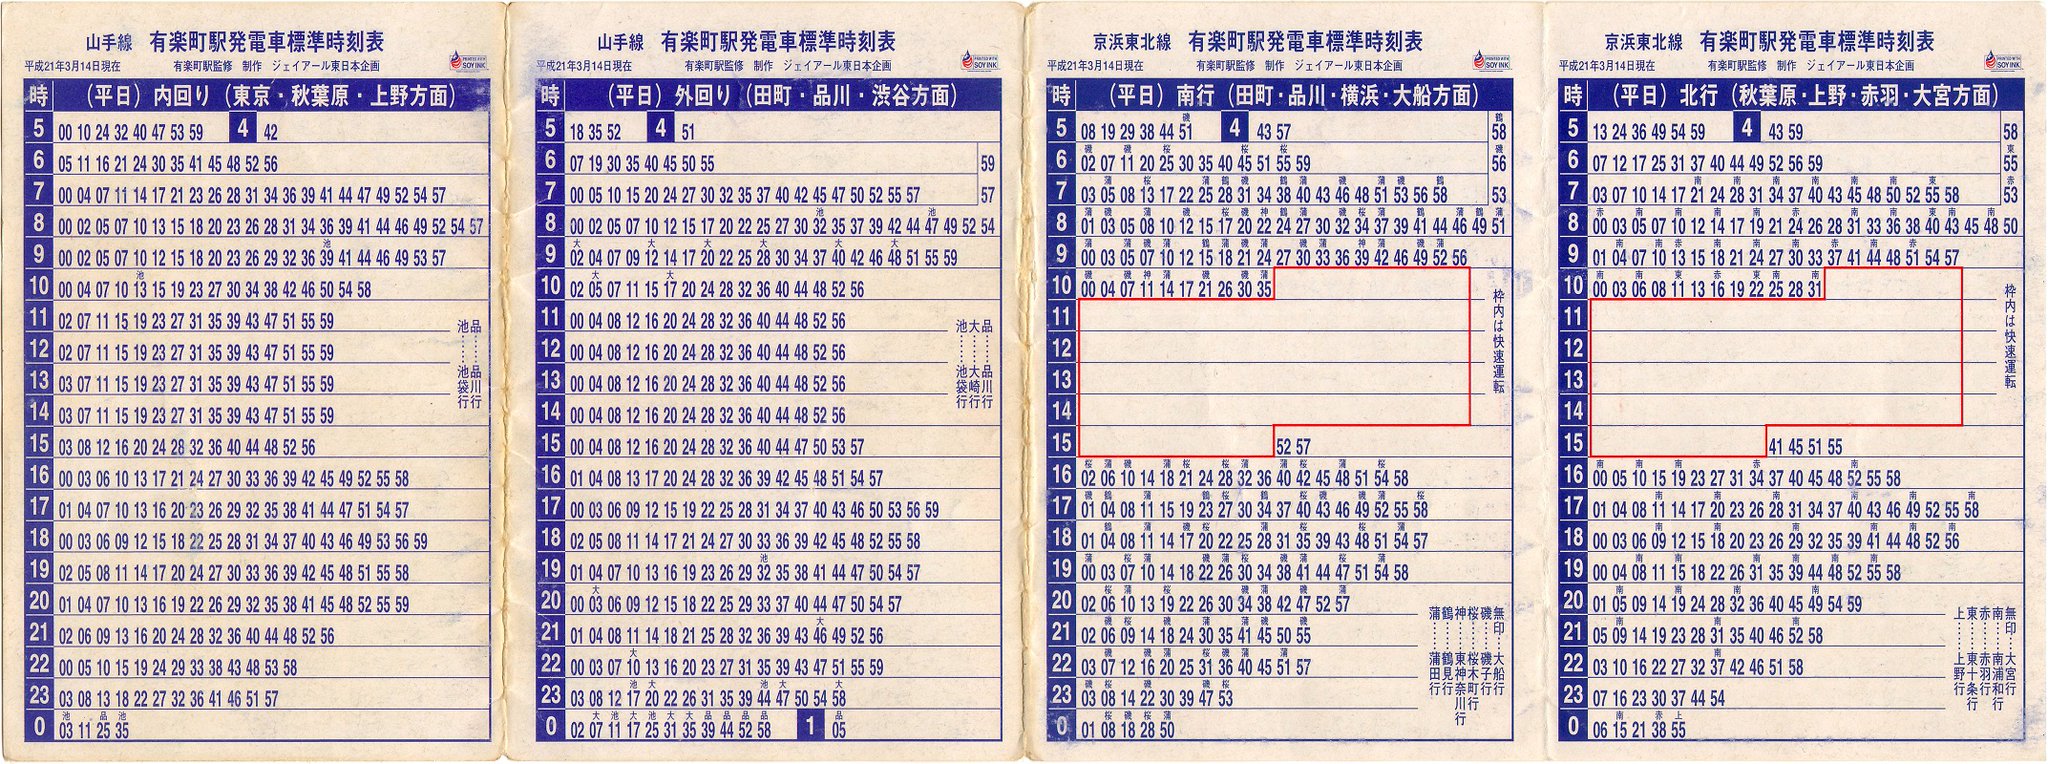 山手線 有楽町駅発電車標準時刻表
平成21年3月14日現在 有楽町駅監修 制作 ジェイアール東日本企画
PRINTED WITH SOY INK
時 (平日) 内回り (東京・秋葉原・上野方面)
5 00 10 24 32 40 47 53 59 4 42
6 05 11 16 21 24 30 35 41 45 48 52 56
7 00 04 07 11 14 17 21 23 26 28 31 34 36 39 41 44 47 49 52 54 57
8 00 02 05 07 10 13 15 18 20 23 26 28 31 34 36 39 41 44 46 49 52 54 57
池
9 00 02 05 07 10 12 15 18 20 23 26 29 32 36 39 41 44 46 49 53 57
池
10 00 04 07 10 13 15 19 23 27 30 34 38 42 46 50 54 58
11 02 07 11 15 19 23 27 31 35 39 43 47 51 55 59
12 02 07 11 15 19 23 27 31 35 39 43 47 51 55 59
13 03 07 11 15 19 23 27 31 35 39 43 47 51 55 59
14 03 07 11 15 19 23 27 31 35 39 43 47 51 55 59
15 03 08 12 16 20 24 28 32 36 40 44 48 52 56
16 00 03 06 10 13 16 20 23 26 29 32 36 39 42 45 49 52 55 58
17 01 04 07 10 13 16 20 23 26 29 32 35 38 41 44 47 51 54 57
18 00 03 06 09 12 15 18 22 25 28 31 34 37 40 43 46 49 53 56 59
19 02 05 08 11 14 17 20 24 27 30 33 36 39 42 45 48 51 55 58
20 01 04 07 10 13 16 19 22 26 29 32 35 38 41 45 48 52 55 59
21 02 06 09 13 16 20 24 28 32 36 40 44 48 52 56
22 00 05 10 15 19 24 29 33 38 43 48 53 58
23 03 08 13 18 22 27 32 36 41 46 51 57
池 品 池
0 03 11 25 35
品……品川行
池……池袋行
山手線 有楽町駅発電車標準時刻表
平成21年3月14日現在 有楽町駅監修 制作 ジェイアール東日本企画
PRINTED WITH SOY INK
時 (平日) 外回り (田町・品川・渋谷方面)
5 18 35 52 4 51
6 07 19 30 35 40 45 50 55 59
7 00 05 10 15 20 24 27 30 32 35 37 40 42 45 47 50 52 55 57 57
池 池
8 00 02 05 07 10 12 15 17 20 22 25 27 30 32 35 37 39 42 44 47 49 52 54
大 大 大 大 大 大
9 02 04 07 09 12 14 17 20 22 25 28 31 34 37 40 42 46 48 51 55 59
大 大
10 02 05 07 11 15 17 20 24 28 32 36 40 44 48 52 56
11 00 04 08 12 16 20 24 28 32 36 40 44 48 52 56
12 00 04 08 12 16 20 24 28 32 36 40 44 48 52 56
13 00 04 08 12 16 20 24 28 32 36 40 44 48 52 56
14 00 04 08 12 16 20 24 28 32 36 40 44 48 52 56
15 00 04 08 12 16 20 24 28 32 36 40 44 47 50 53 57
16 01 04 08 13 14 17 20 23 26 29 32 36 39 42 45 48 51 54 57
17 00 03 06 09 12 15 19 22 25 28 31 34 37 40 43 46 50 53 56 59
18 02 05 08 11 14 17 21 24 27 30 33 36 39 42 45 48 52 55 58
池
19 01 04 07 10 13 16 19 23 26 29 32 35 38 41 44 47 50 54 57
大
20 00 03 06 09 12 15 18 22 25 29 33 37 40 44 47 50 54 57
大
21 01 04 08 11 14 18 21 25 28 32 36 39 43 46 49 52 56
大
22 00 03 07 10 13 16 20 23 27 31 35 39 43 47 51 55 59
池 大 池 大 大
23 03 08 12 17 20 22 26 31 35 39 44 47 50 54 58
大 池 大 池 大 大 品 品 品 品 品
0 02 07 11 17 25 31 35 39 44 52 58 1 05
品……品川行
大……大崎行
池……池袋行
京浜東北線 有楽町駅発電車標準時刻表
平成21年3月14日現在 有楽町駅監修 制作 ジェイアール東日本企画
PRINTED WITH SOY INK
時 (平日) 南行 (田町・品川・横浜・大船方面)
磯 鶴
5 08 19 29 38 44 51 4 43 57 58
磯 磯 桜 桜 桜 磯
6 02 07 11 20 25 30 35 40 45 51 55 59 56
7 03 05 08 13 17 22 25 28 31 34 38 40 43 46 48 51 53 56 58 53
8 01 03 05 08 10 12 15 17 20 22 24 27 30 32 34 37 39 41 44 46 49 51
9 00 03 05 07 10 12 15 18 20 22 24 27 30 33 36 39 42 46 49 52 56
磯 磯 神 蒲 磯 磯 蒲
10 00 04 07 11 14 17 21 26 30 35
11
12
13
14
15 52 57
枠内は快速運転
桜 蒲 磯 蒲 桜 桜 蒲 蒲 桜
16 02 06 10 14 18 21 24 28 32 36 40 42 45 48 51 54 58
17 01 04 08 11 15 19 23 27 30 34 37 40 43 46 49 52 55 58
18 01 04 08 11 14 17 20 22 25 28 31 35 39 43 48 51 54 57
19 00 03 07 10 14 18 22 26 30 34 38 41 44 47 51 54 58
20 02 06 10 13 19 22 26 30 34 38 42 47 52 57
21 02 06 09 14 18 24 30 35 41 45 50 55
22 03 07 12 16 20 25 31 36 40 45 51 57
23 03 08 14 22 30 39 47 53
桜 磯 桜 蒲
0 01 08 18 28 50
無印……大船行
磯……磯子行
桜……桜木町行
神……東神奈川行
鶴……鶴見行
蒲……蒲田行
京浜東北線 有楽町駅発電車標準時刻表
平成21年3月14日現在 有楽町駅監修 制作 ジェイアール東日本企画
PRINTED WITH SOY INK
時 (平日) 北行 (秋葉原・上野・赤羽・大宮方面)
5 13 24 36 49 54 59 4 43 59 58
東
6 07 12 17 25 31 37 40 44 49 52 56 59 55
南 南 南 南 南 東 赤
7 03 07 10 14 17 21 24 28 31 34 37 40 43 45 48 50 52 55 58 53
8 00 03 05 07 10 12 14 17 19 21 24 26 28 31 33 36 38 40 43 45 48 50
南 赤 南 南 赤 南 赤
9 01 04 07 10 13 15 18 21 24 27 30 33 37 41 44 48 51 54 57
南 南 東 赤 東 南 南
10 00 03 06 08 11 13 16 19 22 25 28 31
11
12
13
14
15 41 45 51 55
枠内は快速運転
南 南 赤 南
16 00 05 10 15 19 23 27 31 34 37 40 45 48 52 55 58
南 南 南 南 南
17 01 04 08 11 15 19 23 26 31 34 37 40 43 46 49 52 55 58
18 00 03 06 09 12 15 18 20 23 26 29 32 35 38 41 44 48 52 56
19 00 04 08 11 15 18 22 26 31 35 39 44 48 52 55 58
20 01 05 09 14 19 24 28 32 36 40 45 49 54 59
21 05 09 14 19 23 28 31 35 40 46 52 58
南
22 03 10 16 22 27 32 37 42 46 51 58
23 07 16 23 30 37 44 54
南 赤 上
0 06 15 21 38 55
無印……大宮行
南……南浦和行
赤……赤羽行
東……東十条行
上……上野行